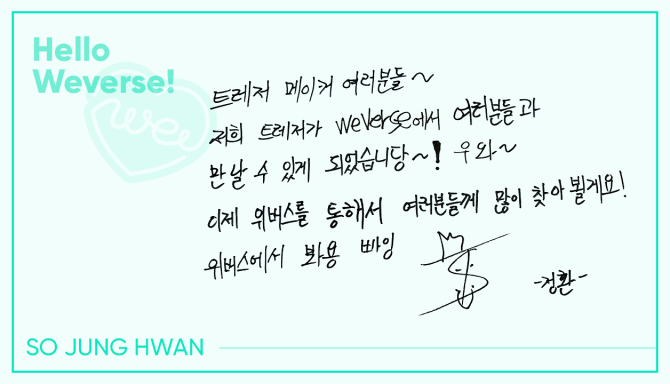 Hello
Weverse!
트레저 메이커 여러분들~
저희 트레저가 weverse에서 여러분들과
만날 수 있게 되었습니당~! 우와~
이제 위버스를 통해서 여러분들께 많이 찾아 뵐게요!
위버스에서 봐용 빠잉
-정환-
SO JUNG HWAN